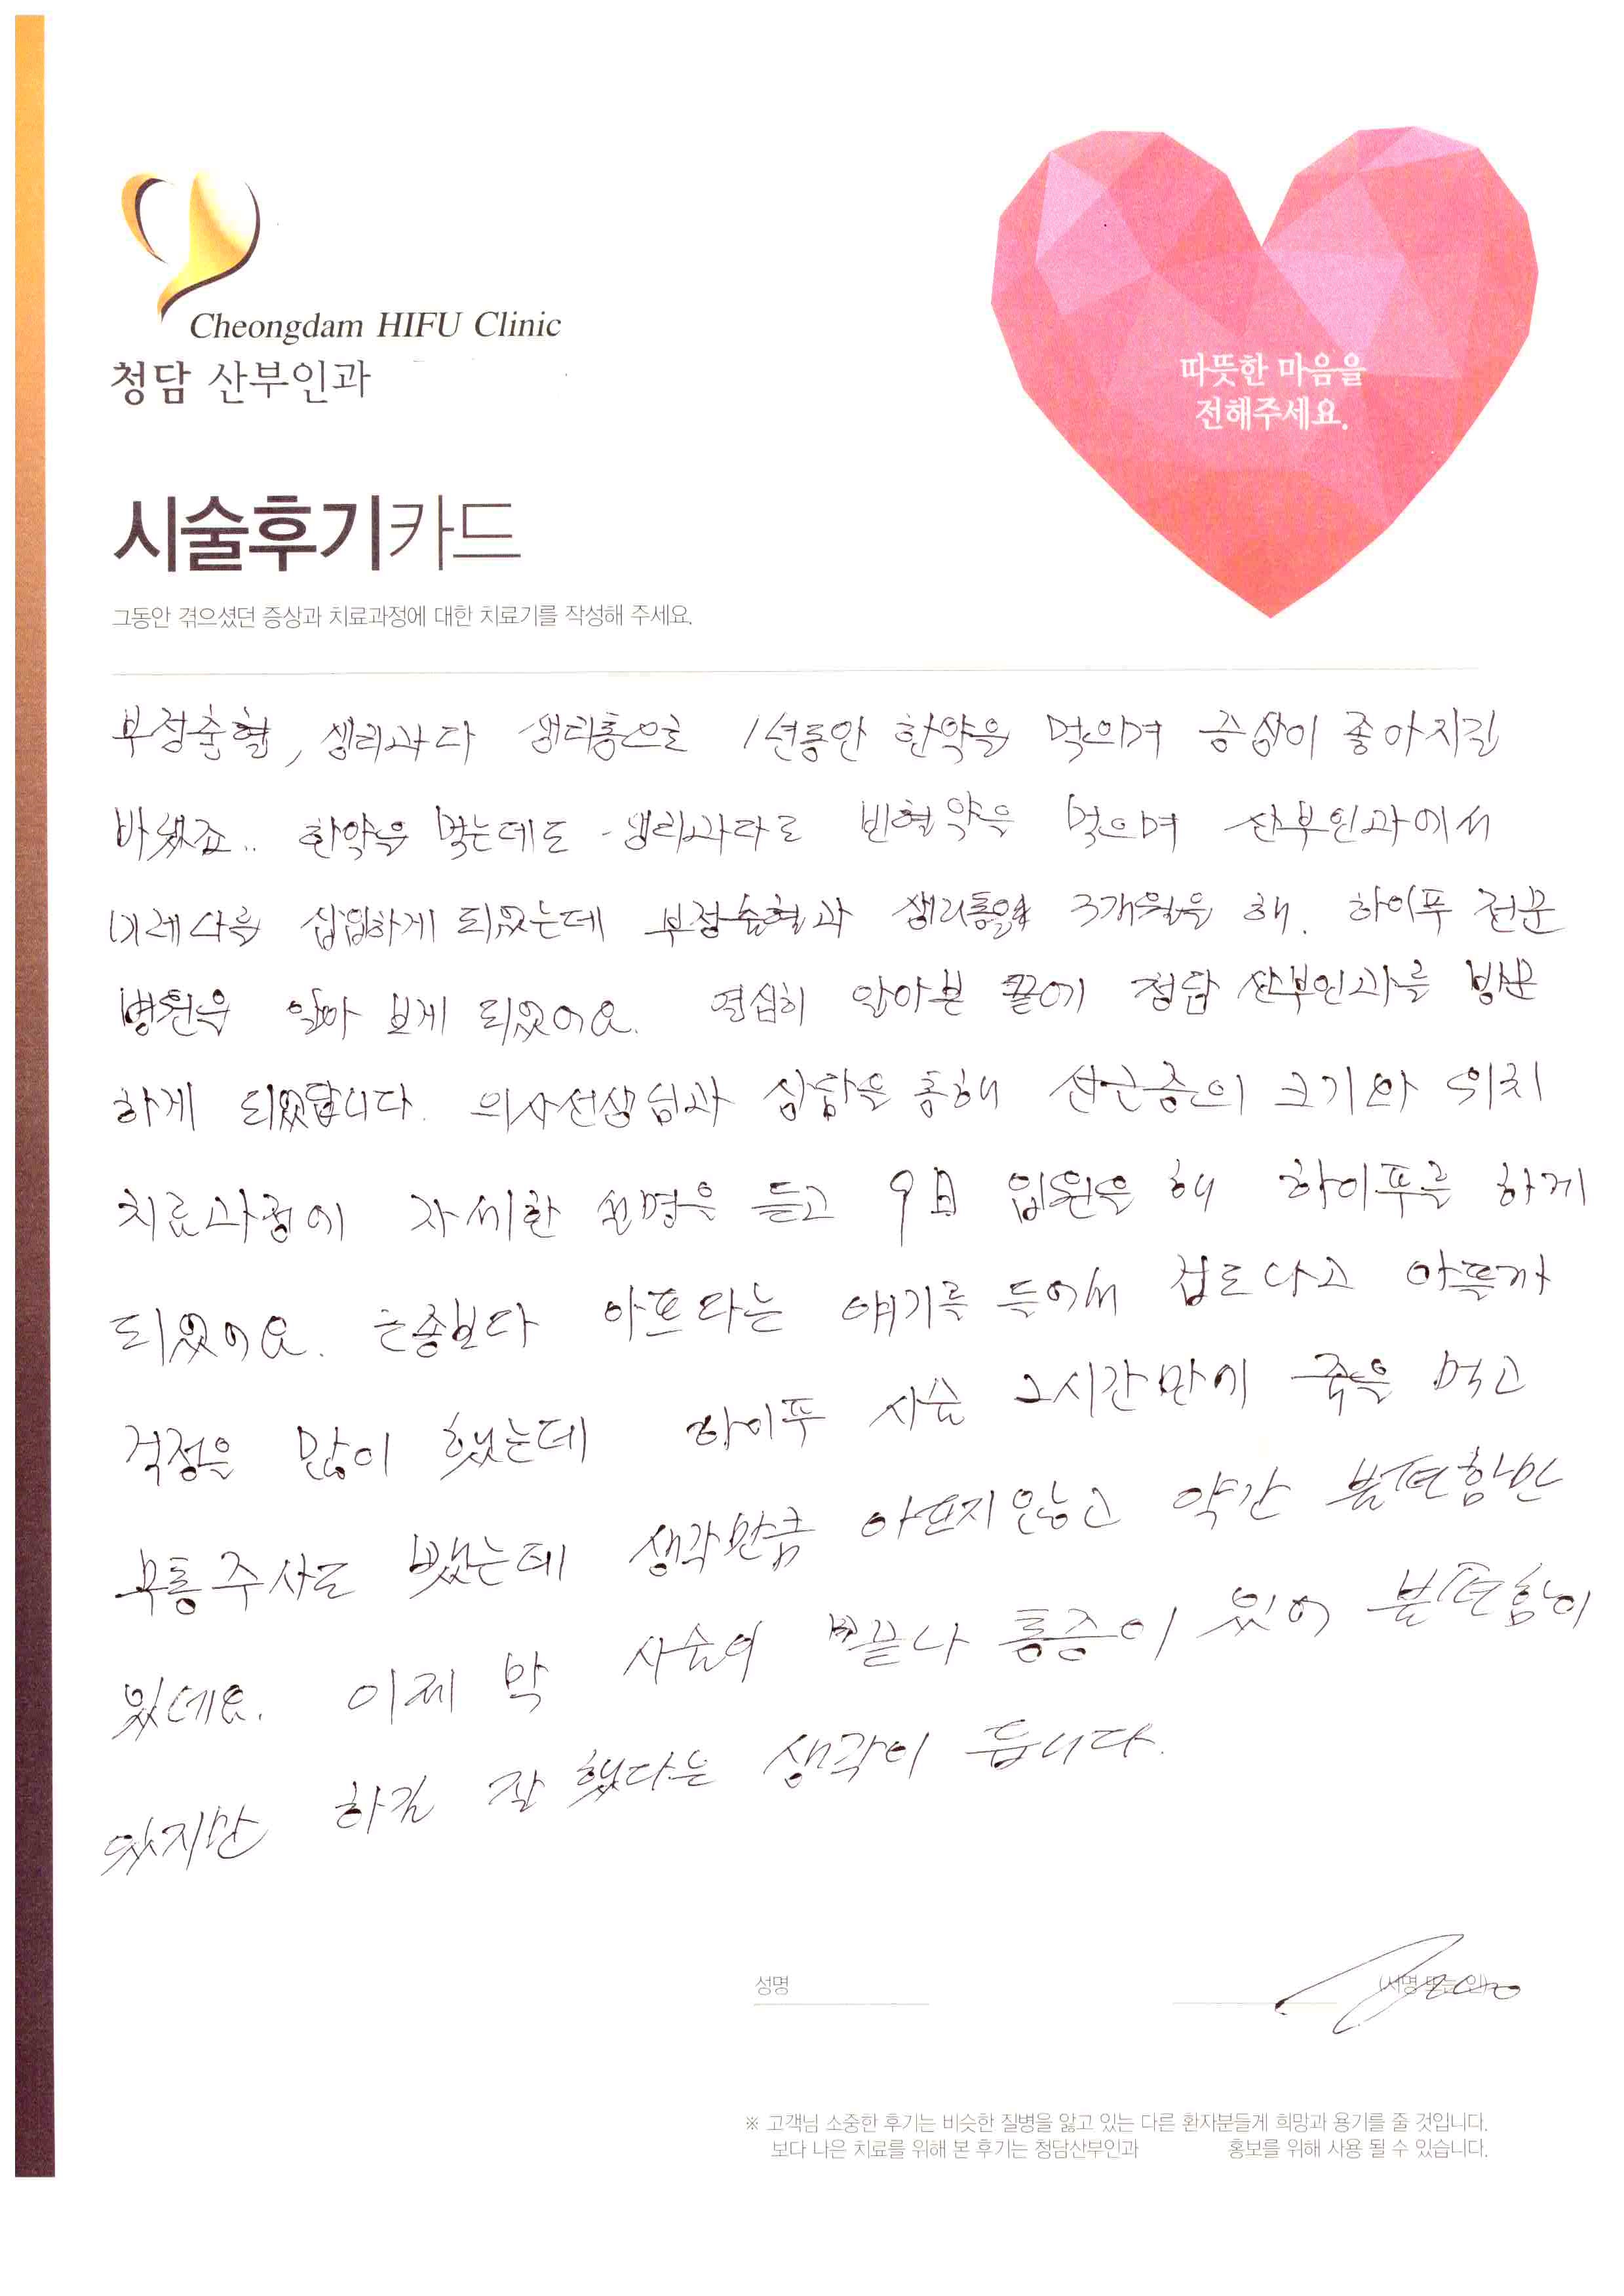 Cheongdam HIFU Clinic
청담 산부인과
따뜻한 마음을
전해주세요.
시술후기카드
그동안 겪으셨던 증상과 치료과정에 대한 치료기를 작성해 주세요.
부정출혈, 생리과다 생리통으로 1년동안 한약을 먹으며 증상이 좋아지길
바랬죠.. 한약을 먹는데도 생리과다로 빈혈약을 먹으며 산부인과에서
미레나를 삽입하게 되었는데 부정출혈과 생리통을 3개월을 해. 하이푸 전문
병원을 알아 보게 되었어요. 열심히 알아본 끝에 청담 산부인과를 방문
하게 되었답니다. 의사선생님과 상담을 통해 선근증의 크기와 위치
치료과정에 자세한 설명을 듣고 9日 입원을 해 하이푸를 하게
되었어요. 근종보다 아프다는 얘기를 들어서 겁도나고 아플까
걱정을 많이 했는데 하이푸 시술 2시간만에 죽을 먹고
무통주사도 뺐는데 생각만큼 아프지않고 약간 불편함만
있데요. 이제 막 시술이 끝나 통증이 있어 불편함이
있지만 하길 잘 했다는 생각이 듭니다.
성명
(서명 또는 인)
※ 고객님 소중한 후기는 비슷한 질병을 앓고 있는 다른 환자분들게 희망과 용기를 줄 것입니다.
보다 나은 치료를 위해 본 후기는 청담산부인과 홍보를 위해 사용 될 수 있습니다.